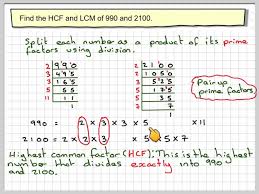 Find the HCF and LCM of 990 and 2100.
Split each number as a product of its prime
factors using division.
2 | 9 9 0
3 | 4 9 5
3 | 1 6 5
5 | 5 5
11 | 1 1
1
2 | 2 1 0 0
2 | 1 0 5 0
3 | 5 2 5
5 | 1 7 5
5 | 3 5
7 | 7
1
Pair up
prime factors
990 = 2 × 3 × 3 × 5 × 11
2100 = 2 × 2 × 3 × 5 × 5 × 7
Highest common factor (HCF): This is the highest
number that divides exactly into 990
and 2100.